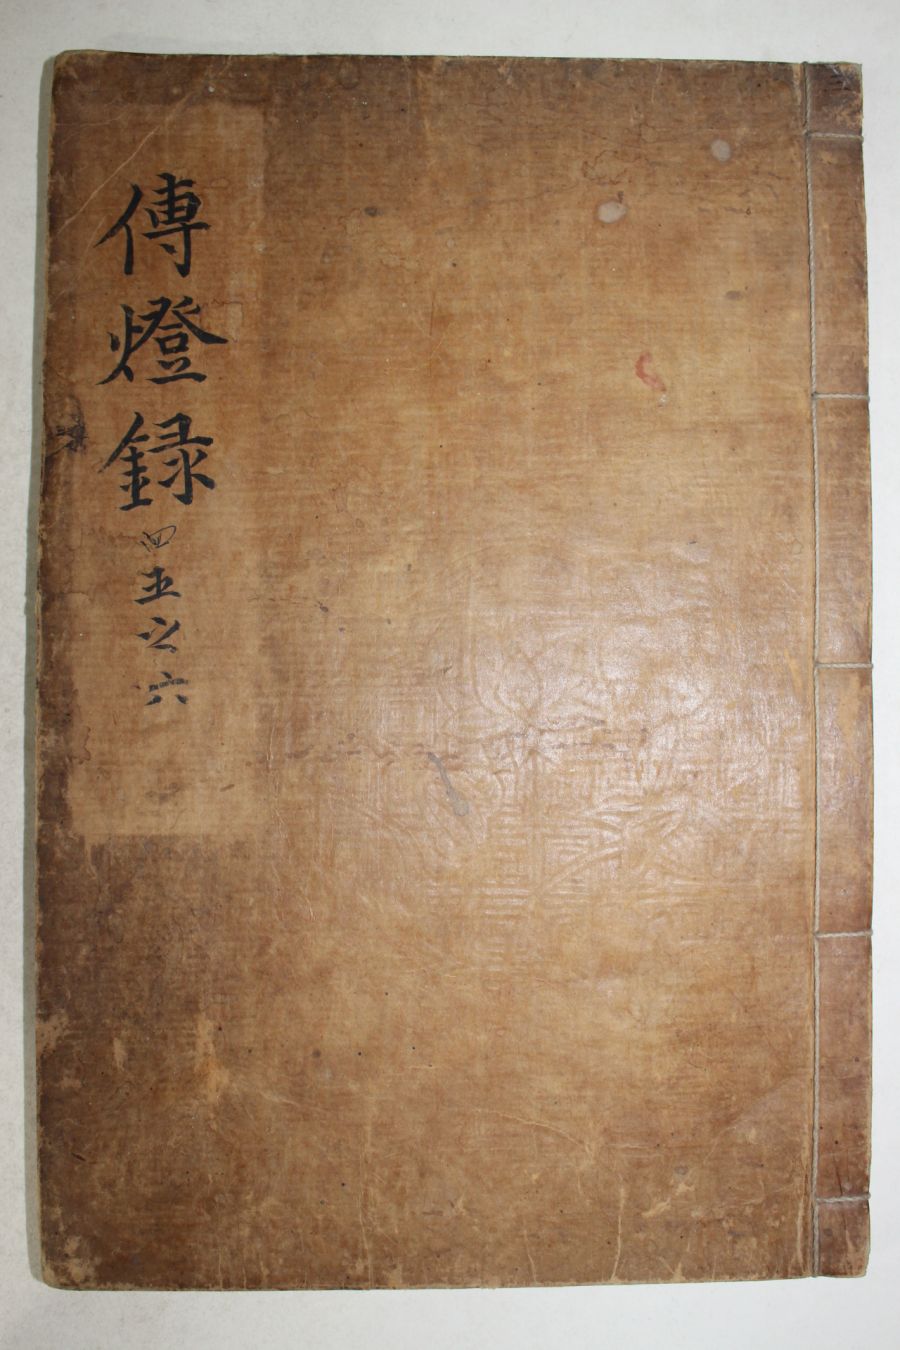 傳燈録
四五之六